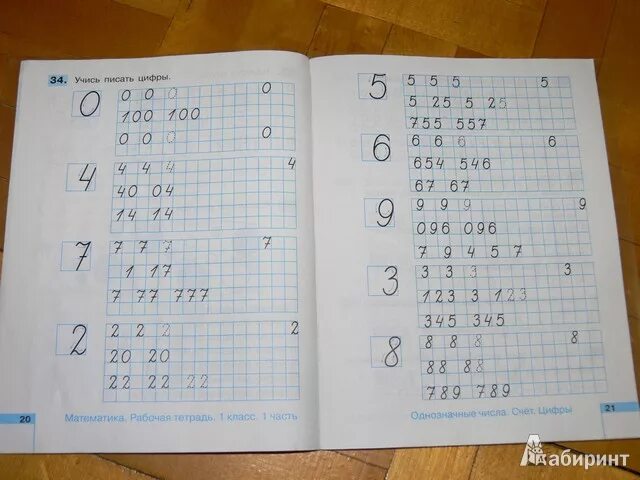 34. Учись писать цифры.
0
0 0 0 0
100 100
0 0 0 0
4
4 4 4 4
40 04
14 14
7
7 7 7 7
1 17
7 77 777
2
2 2 2 2
20 20
22 22 22
20
Математика. Рабочая тетрадь. 1 класс. 1 часть
5
5 5 5 5
5 25 5 25
755 557
6
6 6 6 6
654 546
67 67
9
9 9 9 9
096 096
7 9 4 5 7
3
3 3 3 3
123 3 123
345 345
8
8 8 8 8
88 88
789 789
Однозначные числа. Счёт. Цифры
21
Лабиринт